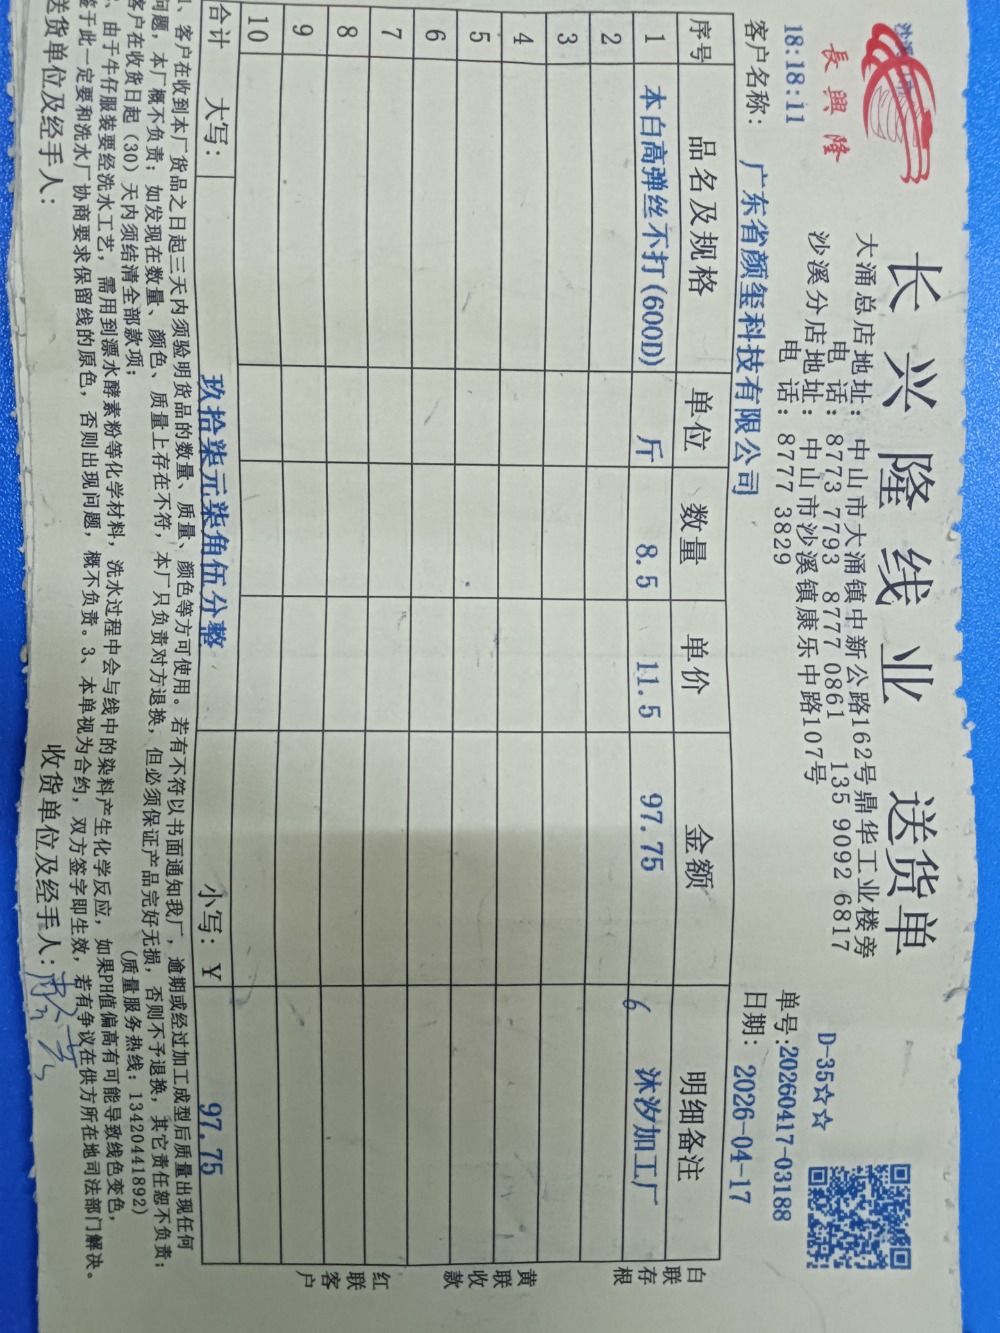 長興隆
长兴隆线业 送货单
大涌总店地址：中山市大涌镇中新公路162号鼎华工业楼旁
电 话：8773 7793 8777 0861 135 9092 6817
沙溪分店地址：中山市沙溪镇康乐中路107号
电 话：8777 3829
D-35☆☆
18:18:11
单号:20260417-03188
客户名称： 广东省颜玺科技有限公司
日期： 2026-04-17
序号 品名及规格 单位 数量 单价 金额 明细备注
1 本白高弹丝不打(600D) 斤 8.5 11.5 97.75 6 沐汐加工厂
2
3
4
5
6
7
8
9
10
合计 大写： 玖拾柒元柒角伍分整 小写：￥ 97.75
白联存根
黄联收款
红联客户
1、客户在收到本厂货品之日起三天内须验明货品的数量、质量、颜色等方可使用。若有不符以书面通知我厂，逾期或经过加工成型后质量出现任何
问题，本厂概不负责；如发现在数量、颜色、质量上存在不符，本厂只负责对方退换，但必须保证产品完好无损，否则不予退换，其它责任恕不负责；
客户在收货日起(30)天内须结清全部款项； (质量服务热线：13420441892)
、由于牛仔服装要经洗水工艺，需用到漂水酵素粉等化学材料，洗水过程中会与线中的染料产生化学反应，如果PH值偏高有可能导致线色变色，
鉴于此一定要和洗水厂协商要求保留线的原色，否则出现问题，概不负责。3、本单视为合约，双方签字即生效，若有争议在供方所在地司法部门解决。
送货单位及经手人： 收货单位及经手人：